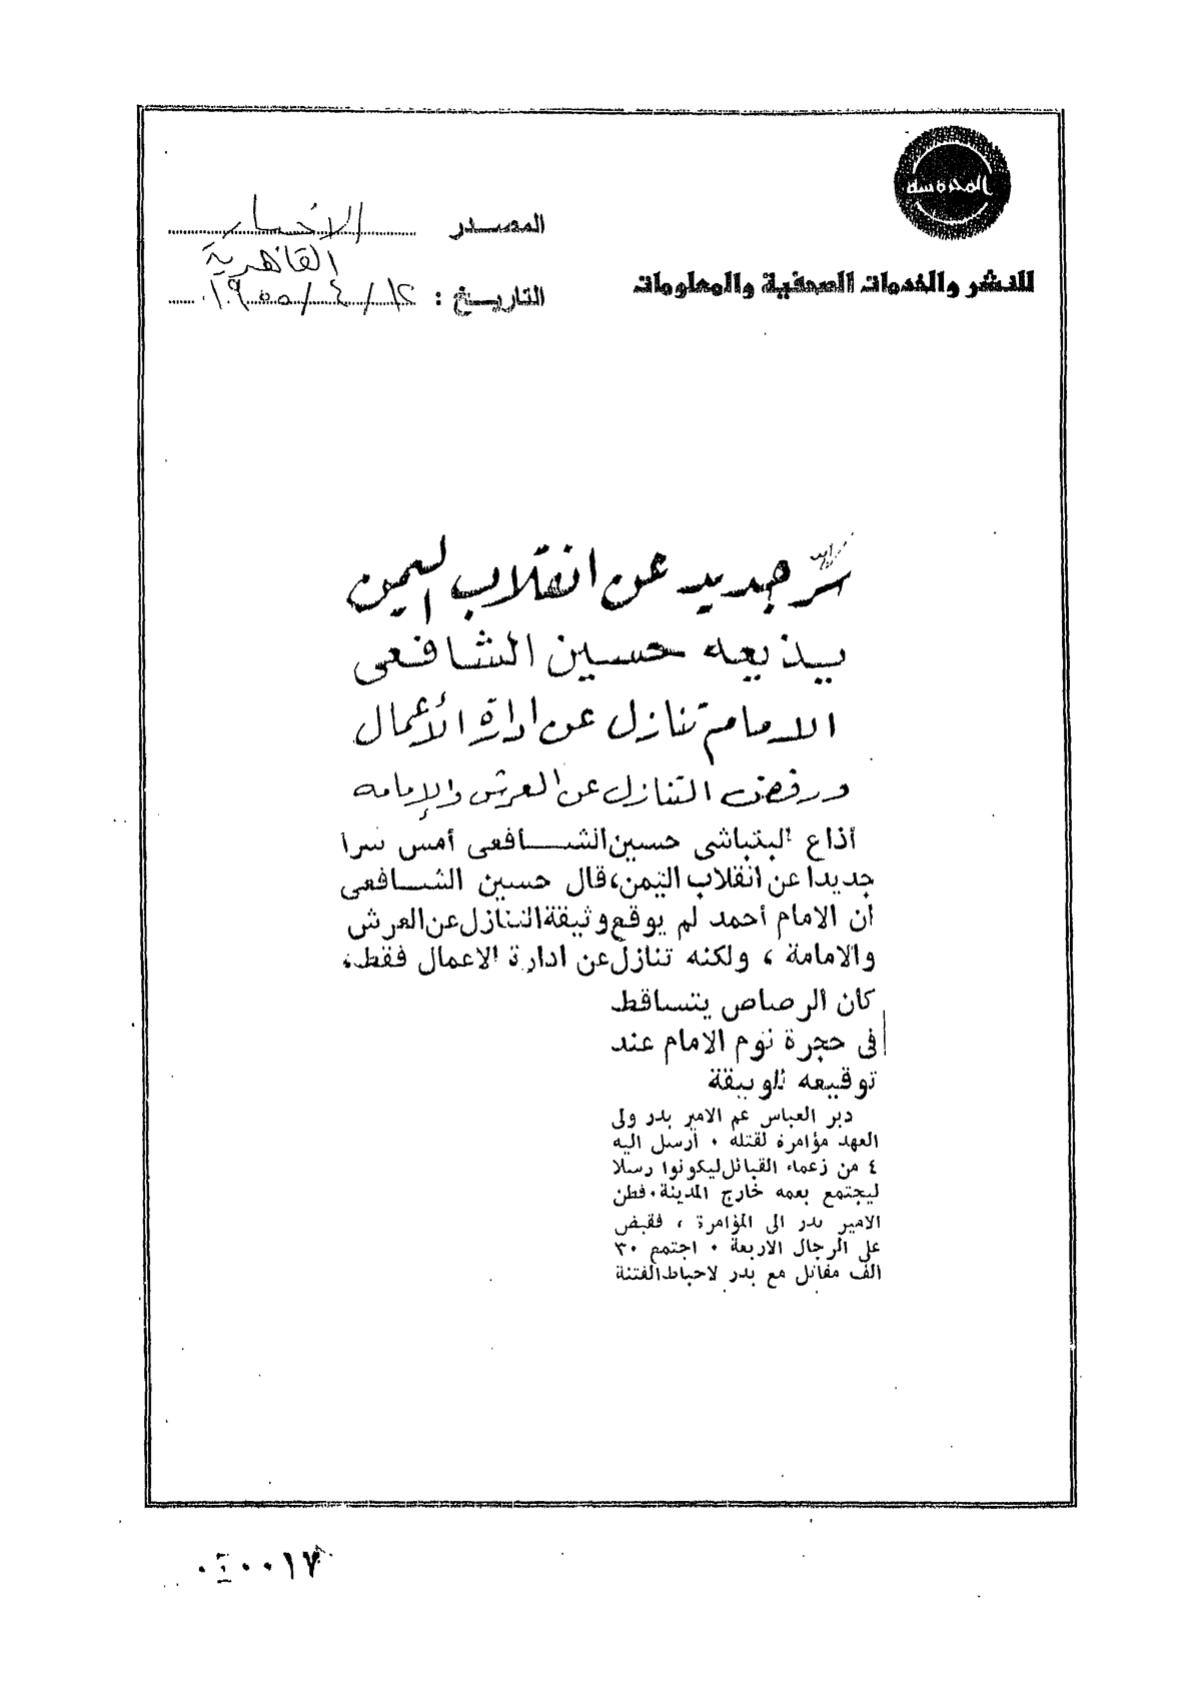 المحروسة
للنشر والخدمات الصحفية والمعلومات
المصدر الاخبار
القاهرية
التاريخ : ١٢/٤/١٩٥٥
سر جديد عن انقلاب اليمن
يذيعه حسين الشافعى
الامام تنازل عن ادارة الأعمال
ورفض التنازل عن العرش والإمامه
أذاع البتباشى حسين الشافعى أمس سرا
جديدا عن انقلاب اليمن، قال حسين الشافعى
ان الامام أحمد لم يوقع وثيقة التنازل عن العرش
والامامة ، ولكنه تنازل عن ادارة الاعمال فقط،
كان الرصاص يتساقط
فى حجرة نوم الامام عند
توقيعه الوثيقة
دبر العباس عم الامير بدر ولى
العهد مؤامرة لقتله ٠ أرسل اليه
٤ من زعماء القبائل ليكونوا رسلا
ليجتمع بعمه خارج المدينة ٠ فطن
الامير بدر الى المؤامرة ، فقبض
على الرجال الاربعة ٠ اجتمع ٣٠
الف مقاتل مع بدر لاحباط الفتنة
٠٤٠٠١٧